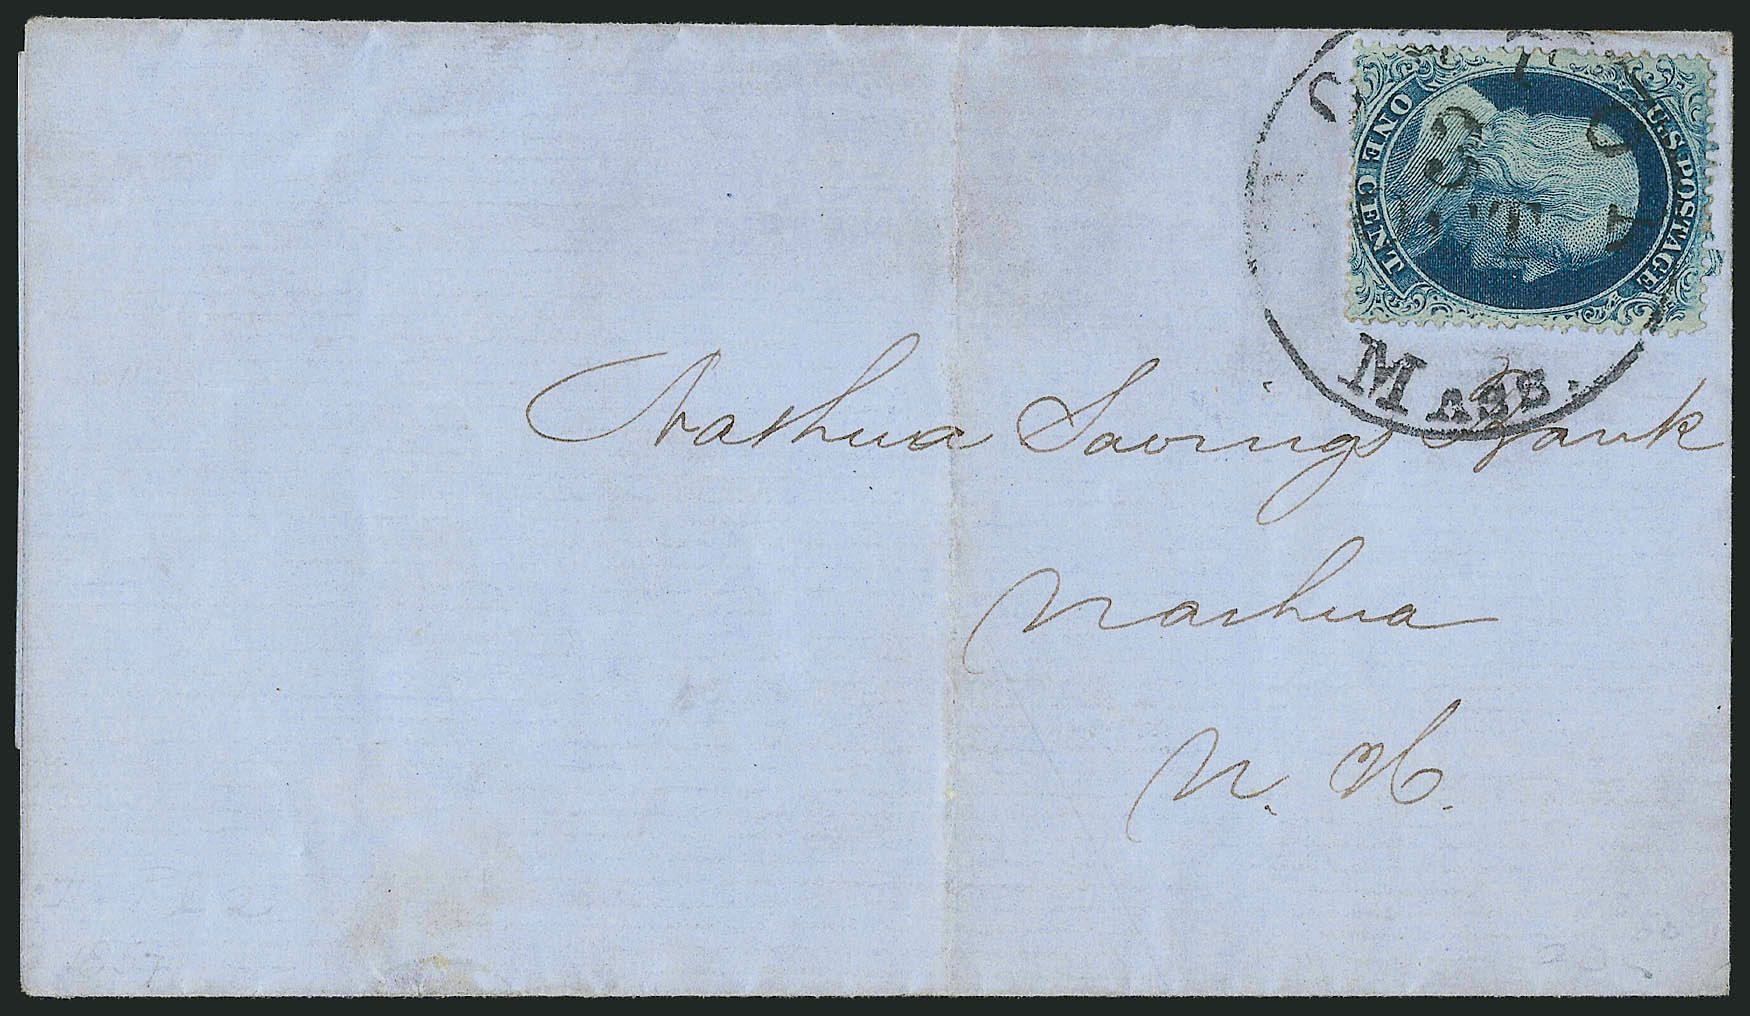 U.S. POSTAGE
ONE CENT
3
Mass.
Nashua Savings Bank
Nashua
N. H.